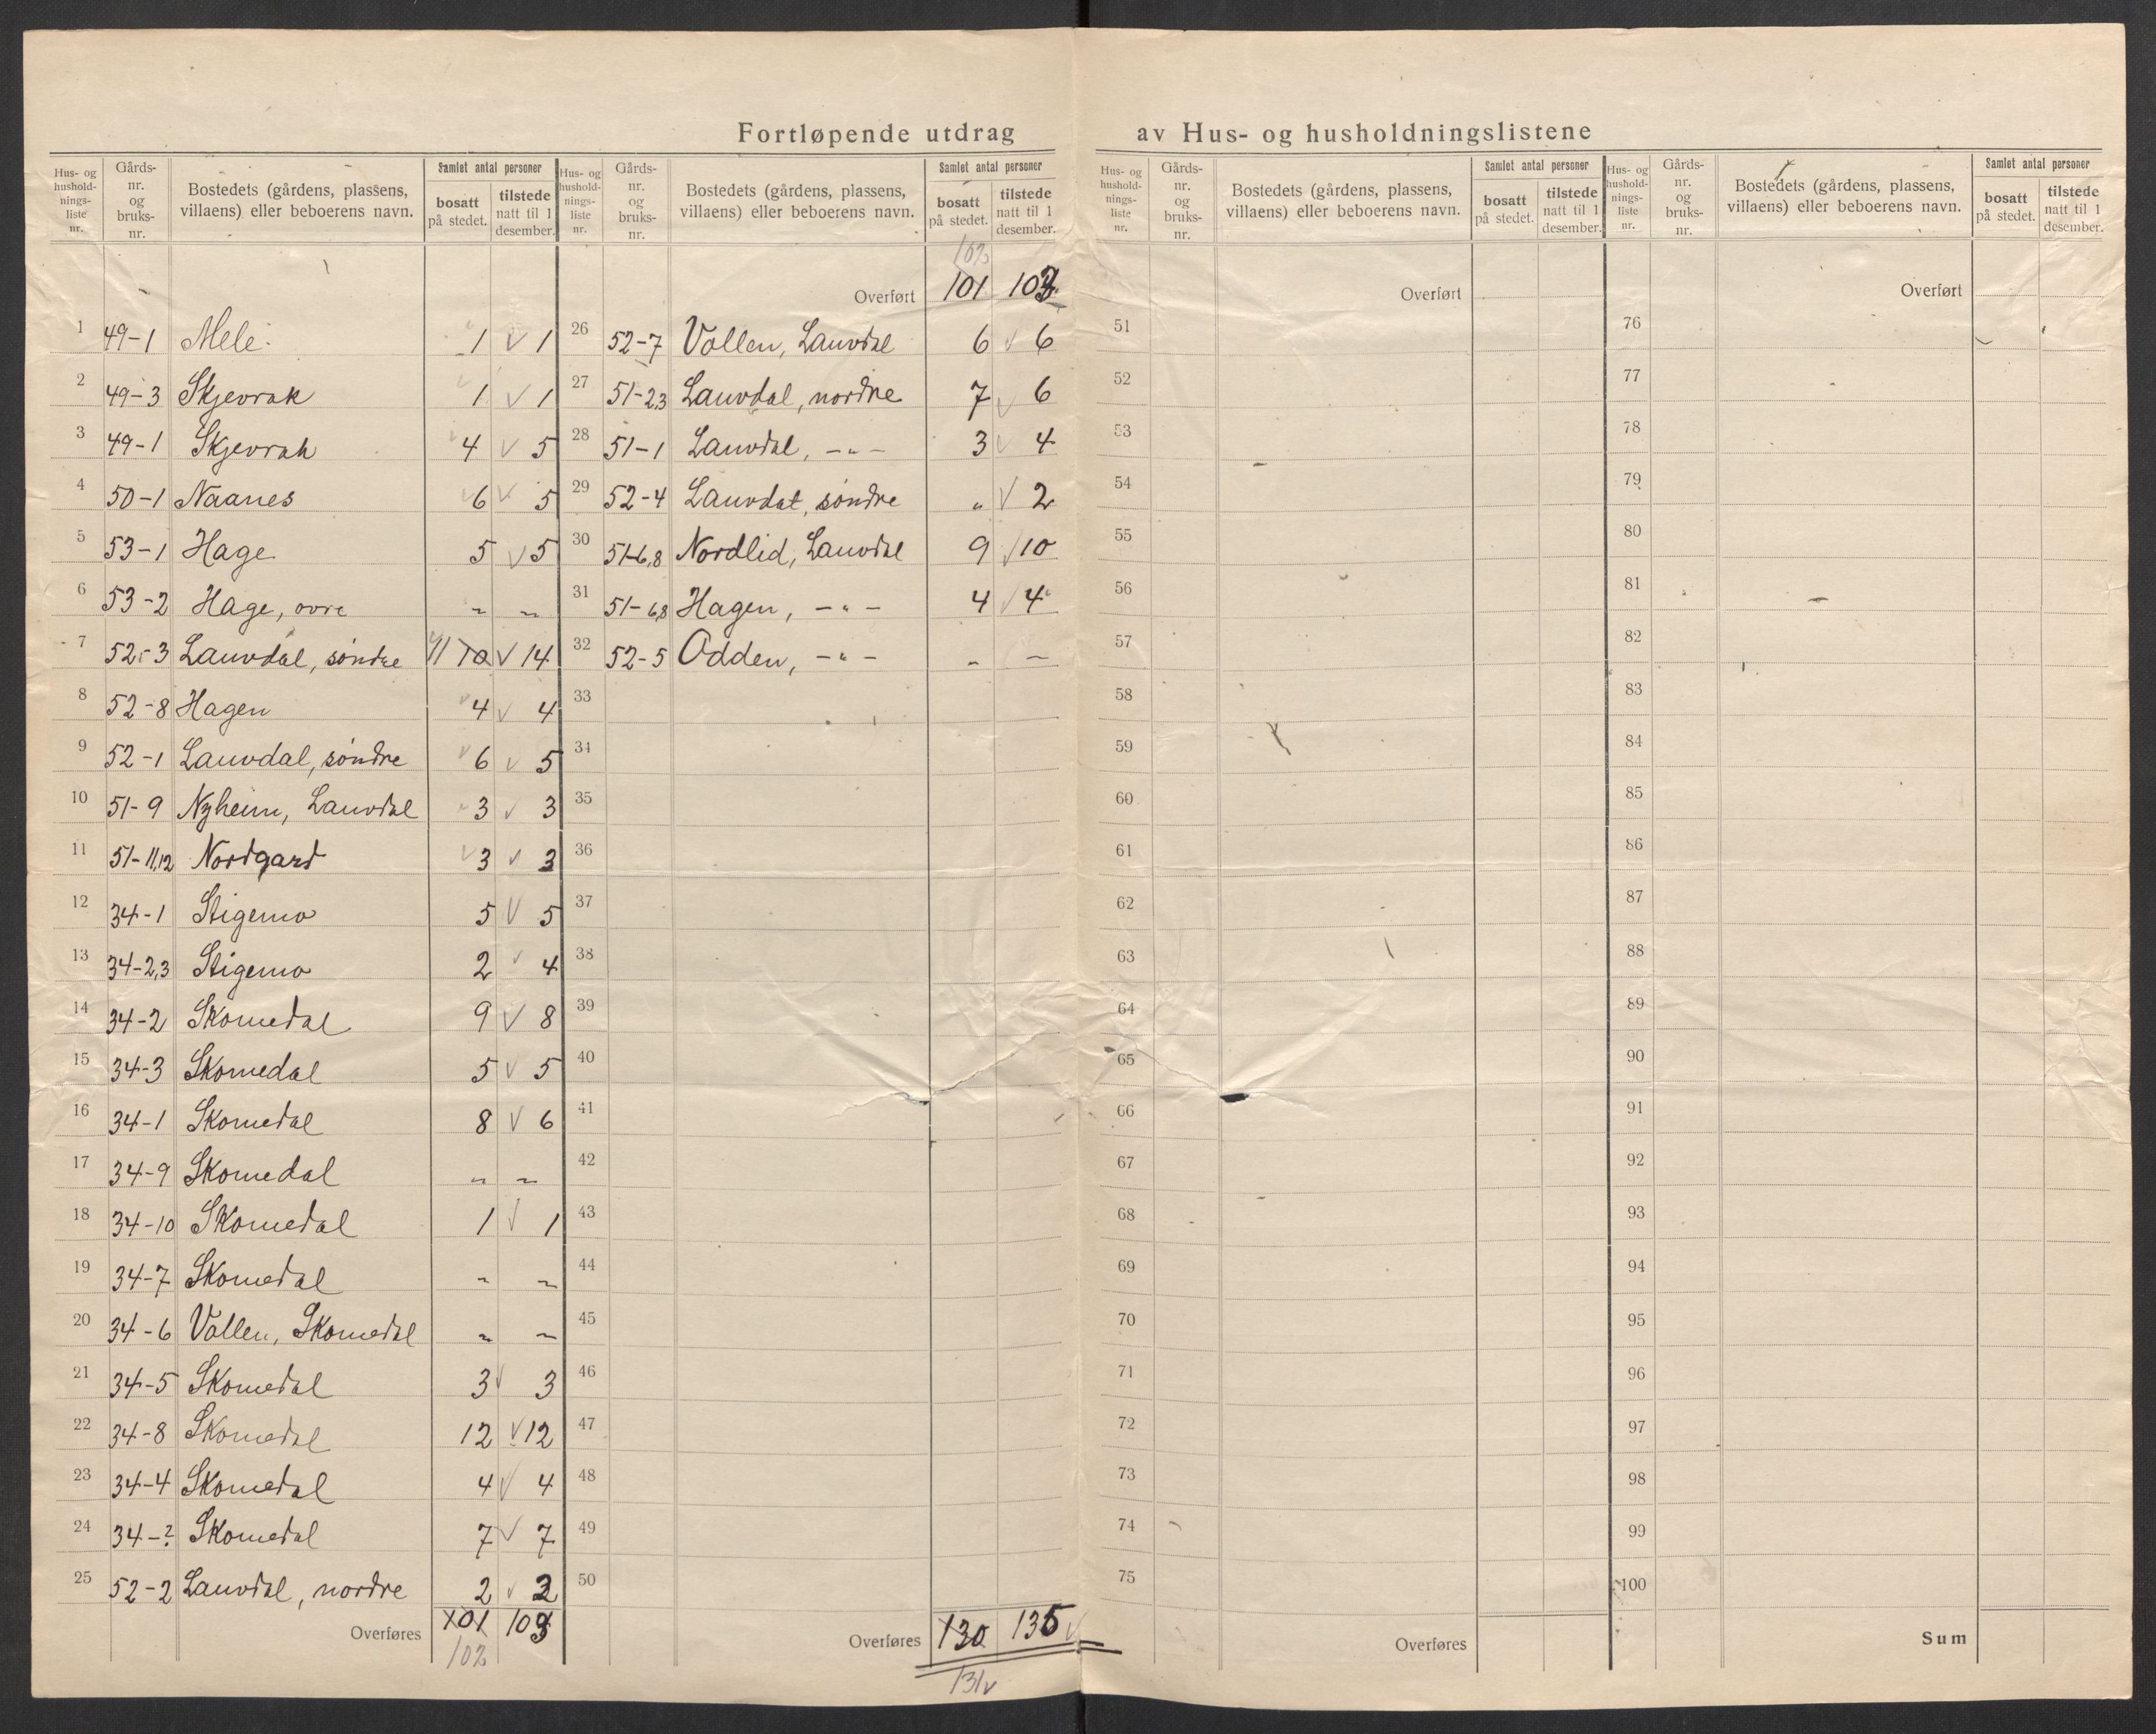 Fortløpende utdrag av Hus- og husholdningslistene
Hus- og hushold- nings- liste nr. Gårds- nr. og bruks- nr. Bostedets (gårdens, plassens, villaens) eller beboerens navn. Samlet antal personer bosatt på stedet. tilstede natt til 1 desember.
Hus- og hushold- nings- liste nr. Gårds- nr. og bruks- nr. Bostedets (gårdens, plassens, villaens) eller beboerens navn. Samlet antal personer bosatt på stedet. tilstede natt til 1 desember.
Hus- og hushold- nings- liste nr. Gårds- nr. og bruks- nr. Bostedets (gårdens, plassens, villaens) eller beboerens navn. Samlet antal personer bosatt på stedet. tilstede natt til 1 desember.
Hus- og hushold- nings- liste nr. Gårds- nr. og bruks- nr. Bostedets (gårdens, plassens, villaens) eller beboerens navn. Samlet antal personer bosatt på stedet. tilstede natt til 1 desember.
1 49-1 Mele 1 v 1
2 49-3 Skjevrak 1 v 1
3 49-1 Skjevrak 4 v 5
4 50-1 Naanes 6 v 5
5 53-1 Hage 5 v 5
6 53-2 Hage, øvre " "
7 52-3 Lauvdal, søndre 11 10 v 14
8 52-8 Hagen 4 v 4
9 52-1 Lauvdal, søndre 6 v 5
10 51-9 Nyheim, Lauvdal 3 v 3
11 51-11,12 Nordgard 3 v 3
12 34-1 Stigemo 5 v 5
13 34-2,3 Stigemo 2 v 4
14 34-2 Skomedal 9 v 8
15 34-3 Skomedal 5 v 5
16 34-1 Skomedal 8 v 6
17 34-9 Skomedal " "
18 34-10 Skomedal 1 v 1
19 34-7 Skomedal " "
20 34-6 Vollen, Skomedal " "
21 34-5 Skomedal 3 v 3
22 34-8 Skomedal 12 v 12
23 34-4 Skomedal 4 v 4
24 34-? Skomedal 7 v 7
25 52-2 Lauvdal, nordre 2 v 2
Overføres 101 103
102
102
Overført 101 103
26 52-7 Vollen, Lauvdal 6 v 6
27 51-2,3 Lauvdal, nordre 7 v 6
28 51-1 Lauvdal, -"- 3 v 4
29 52-4 Lauvdal, søndre " v 2
30 51-6,8 Nordlid, Lauvdal 9 v 10
31 51-6,8 Hagen, -"- 4 v 4
32 52-5 Odden, -"- " -
33
34
35
36
37
38
39
40
41
42
43
44
45
46
47
48
49
50
Overføres 130 135 v
131 v
Overført
51
52
53
54
55
56
57
58
59
60
61
62
63
64
65
66
67
68
69
70
71
72
73
74
75
Overføres
Overført
76
77
78
79
80
81
82
83
84
85
86
87
88
89
90
91
92
93
94
95
96
97
98
99
100
Sum